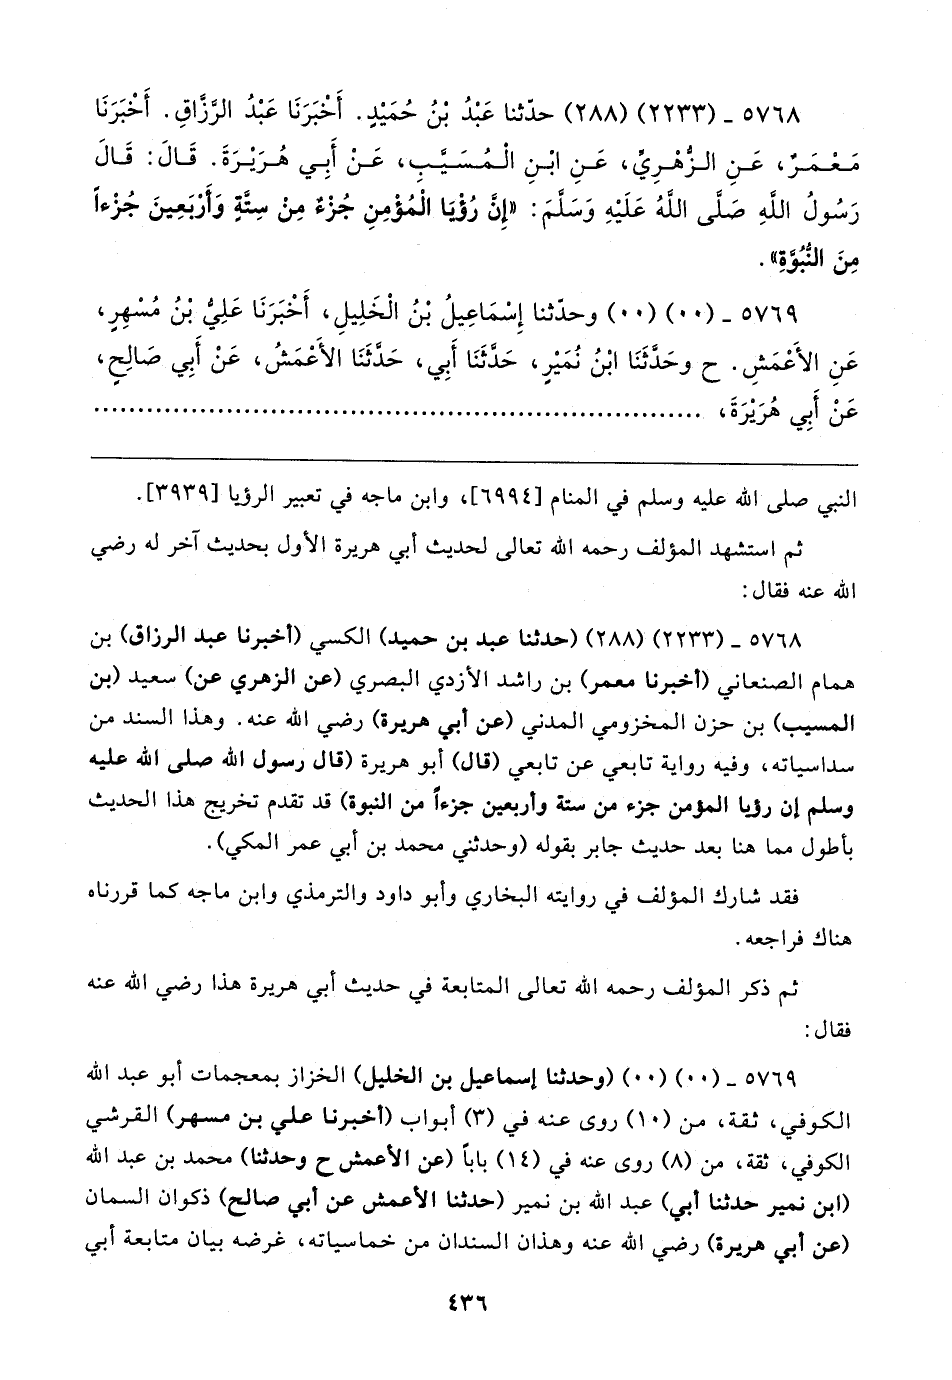 ٥٧٦٨ ـ (٢٢٣٣) (٢٨٨) حدّثنا عَبْدُ بْنُ حُمَيْدٍ. أَخْبَرَنَا عَبْدُ الرَّزَّاقِ. أَخْبَرَنَا
مَعْمَرٌ، عَنِ الزُّهْرِيِّ، عَنِ ابْنِ الْمُسَيَّبِ، عَنْ أَبِي هُرَيْرَةَ. قَالَ: قَالَ
رَسُولُ اللَّهِ صَلَّى اللَّهُ عَلَيْهِ وَسَلَّمَ: «إِنَّ رُؤْيَا الْمُؤْمِنِ جُزْءٌ مِنْ سِتَّةٍ وَأَرْبَعِينَ جُزْءاً
مِنَ النُّبُوَّةِ».
٥٧٦٩ ـ (٠٠) (٠٠) وحدّثنا إِسْمَاعِيلُ بْنُ الْخَلِيلِ، أَخْبَرَنَا عَلِيُّ بْنُ مُسْهِرٍ،
عَنِ الأَعْمَشِ. ح وحَدَّثَنَا ابْنُ نُمَيْرٍ، حَدَّثَنَا أَبِي، حَدَّثَنَا الأَعْمَشُ، عَنْ أَبِي صَالِحٍ،
عَنْ أَبِي هُرَيْرَةَ، ................................................................
النبي صلى الله عليه وسلم في المنام [٦٩٩٤]، وابن ماجه في تعبير الرؤيا [٣٩٣٩].
ثم استشهد المؤلف رحمه الله تعالى لحديث أبي هريرة الأول بحديث آخر له رضي
الله عنه فقال:
٥٧٦٨ ـ (٢٢٣٣) (٢٨٨) (حدثنا عبد بن حميد) الكسي (أخبرنا عبد الرزاق) بن
همام الصنعاني (أخبرنا معمر) بن راشد الأزدي البصري (عن الزهري عن) سعيد (بن
المسيب) بن حزن المخزومي المدني (عن أبي هريرة) رضي الله عنه. وهذا السند من
سداسياته، وفيه رواية تابعي عن تابعي (قال) أبو هريرة (قال رسول الله صلى الله عليه
وسلم إن رؤيا المؤمن جزء من ستة وأربعين جزءاً من النبوة) قد تقدم تخريج هذا الحديث
بأطول مما هنا بعد حديث جابر بقوله (وحدثني محمد بن أبي عمر المكي).
فقد شارك المؤلف في روايته البخاري وأبو داود والترمذي وابن ماجه كما قررناه
هناك فراجعه.
ثم ذكر المؤلف رحمه الله تعالى المتابعة في حديث أبي هريرة هذا رضي الله عنه
فقال:
٥٧٦٩ ـ (٠٠) (٠٠) (وحدثنا إسماعيل بن الخليل) الخزاز بمعجمات أبو عبد الله
الكوفي، ثقة، من (١٠) روى عنه في (٣) أبواب (أخبرنا علي بن مسهر) القرشي
الكوفي، ثقة، من (٨) روى عنه في (١٤) باباً (عن الأعمش ح وحدثنا) محمد بن عبد الله
(ابن نمير حدثنا أبي) عبد الله بن نمير (حدثنا الأعمش عن أبي صالح) ذكوان السمان
(عن أبي هريرة) رضي الله عنه وهذان السندان من خماسياته، غرضه بيان متابعة أبي
٤٣٦